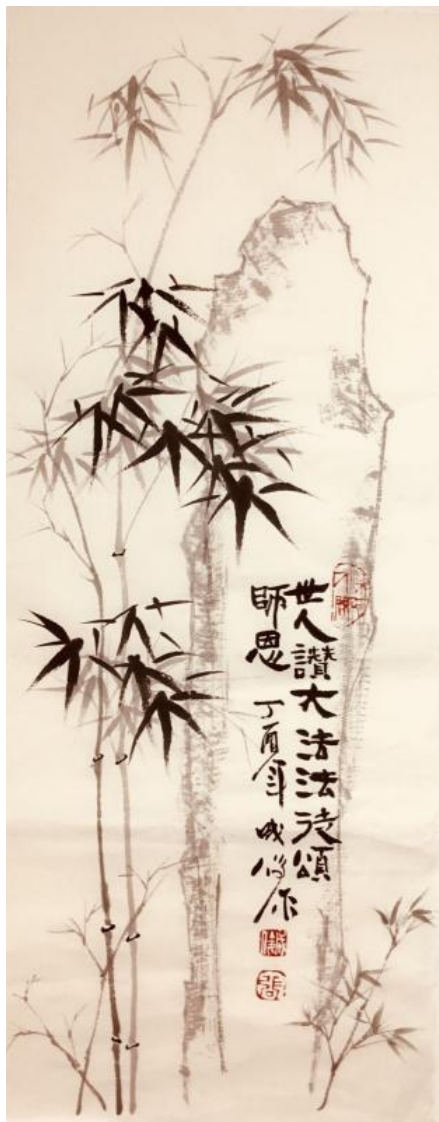 世人讚大法法徒頌
師恩 丁酉年 作